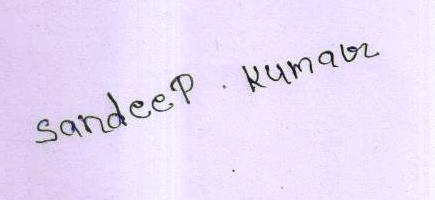 SandeeP. Kumar